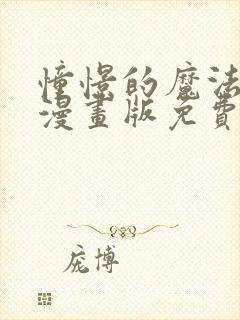 憧憬的魔法
漫畫版免費
庞博